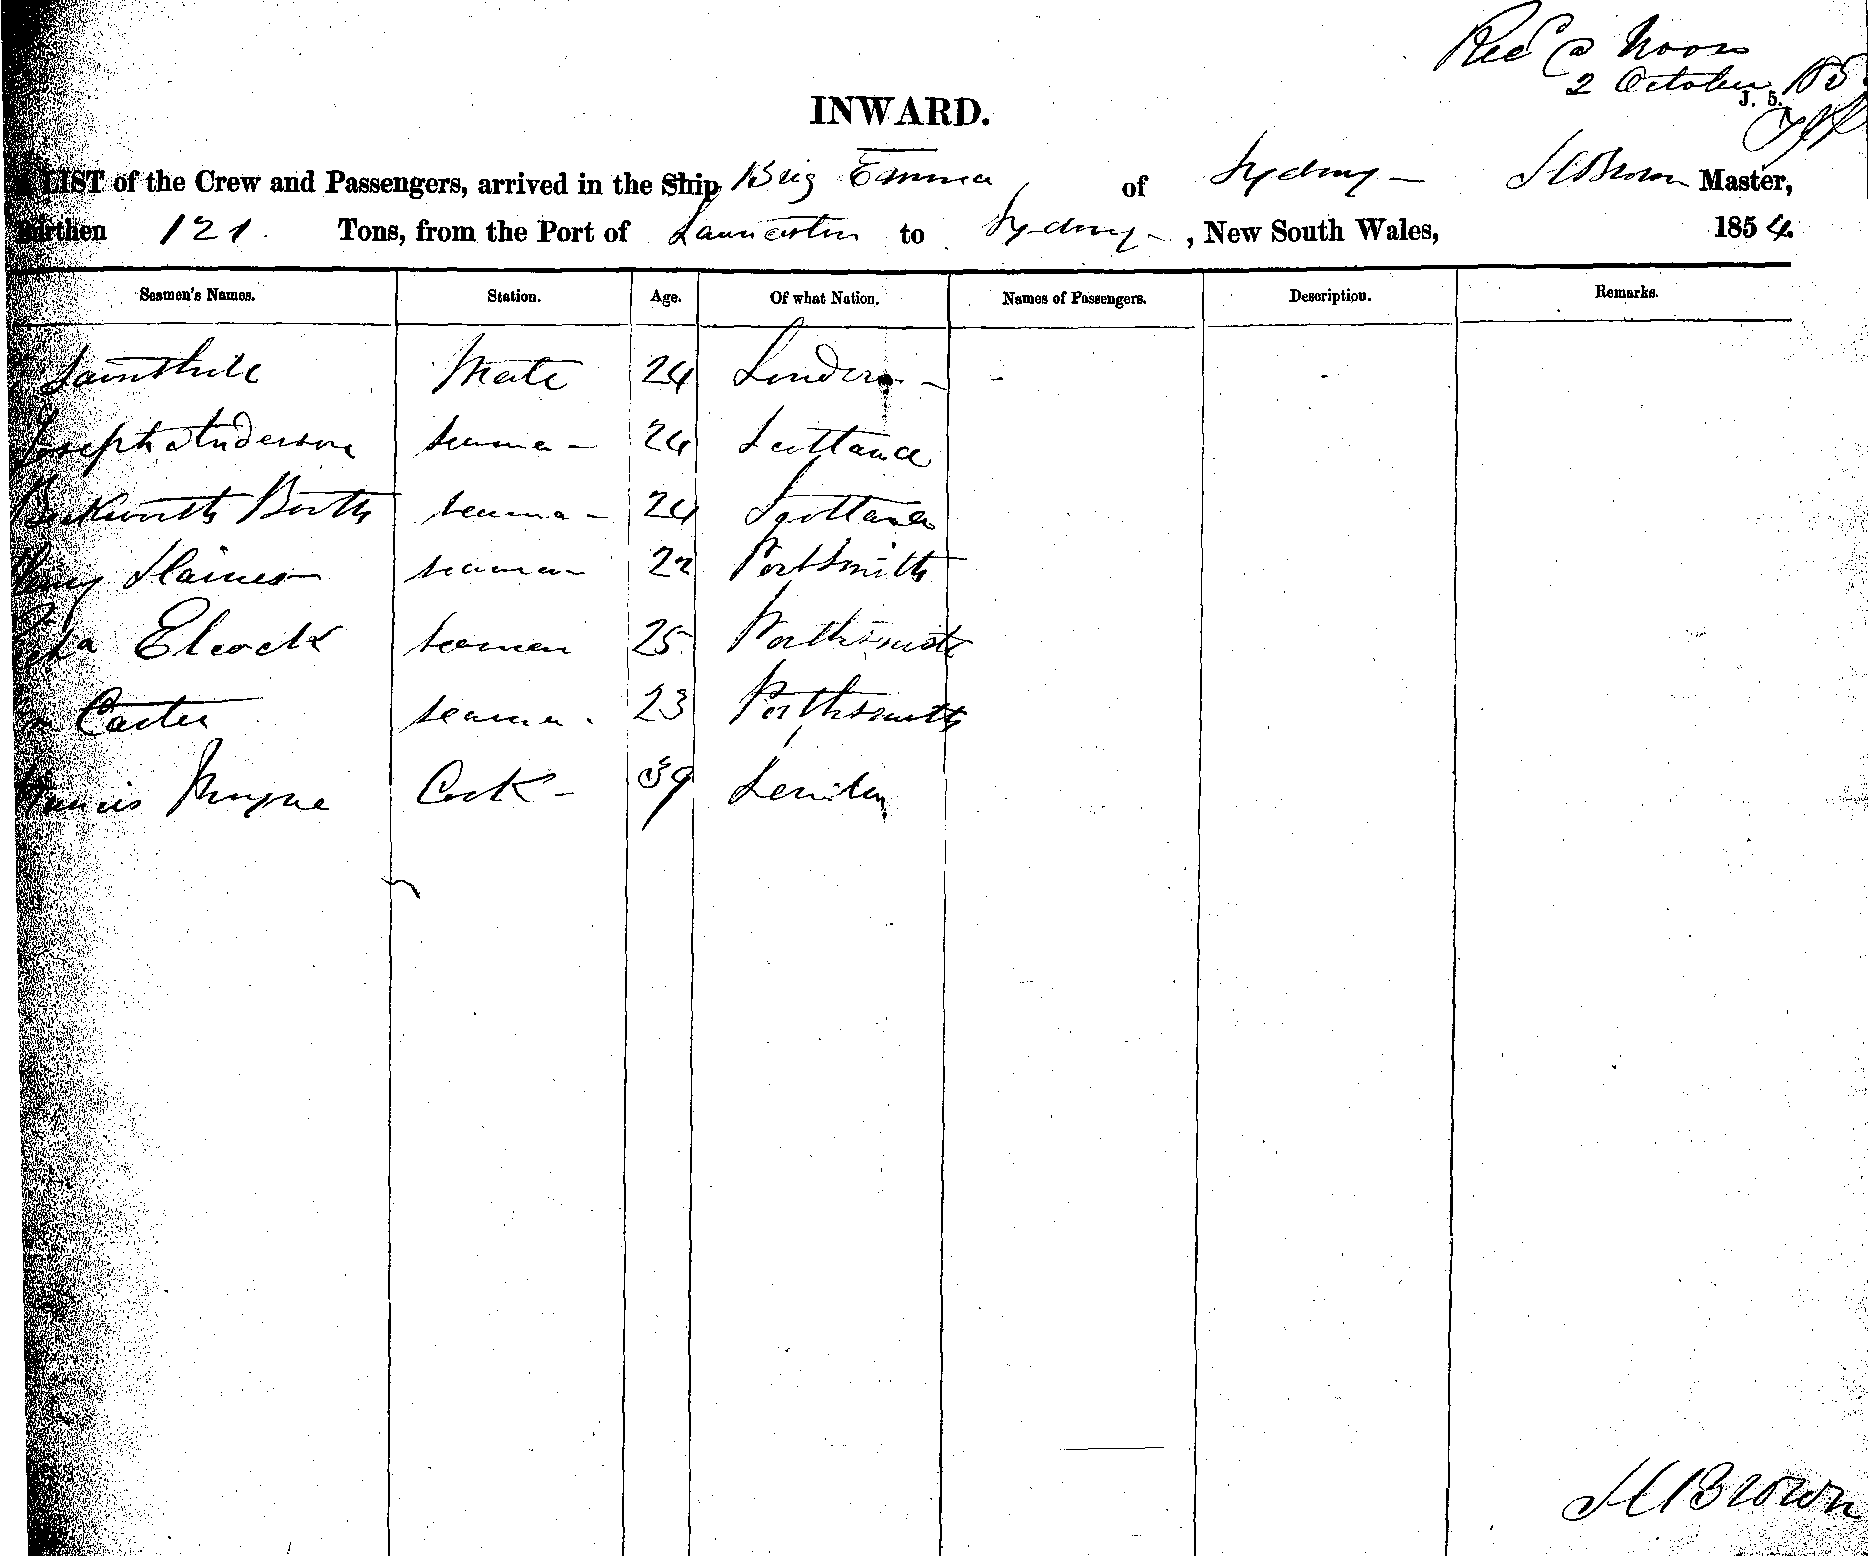 Recd @ Noon
2 October 185
J. 5.
INWARD.
LIST of the Crew and Passengers, arrived in the Ship Brig Emma, of Sydney - H Brown Master,
Burthen 121. Tons, from the Port of Launceston to Sydney -, New South Wales, 1854.
Seamen's Names. Station. Age. Of what Nation. Names of Passengers. Description. Remarks.
Sainthill Mate 24 London - -
Joseph Anderson seaman - 24 Scotland
Beckworth Booth seaman - 24 Scotland
Henry Haines seaman 22 Portsmith
Elcock seaman 25 Porthsmoth
Carter seaman. 23 Porthsmouth
Francis Cook - 39 London
H Brown